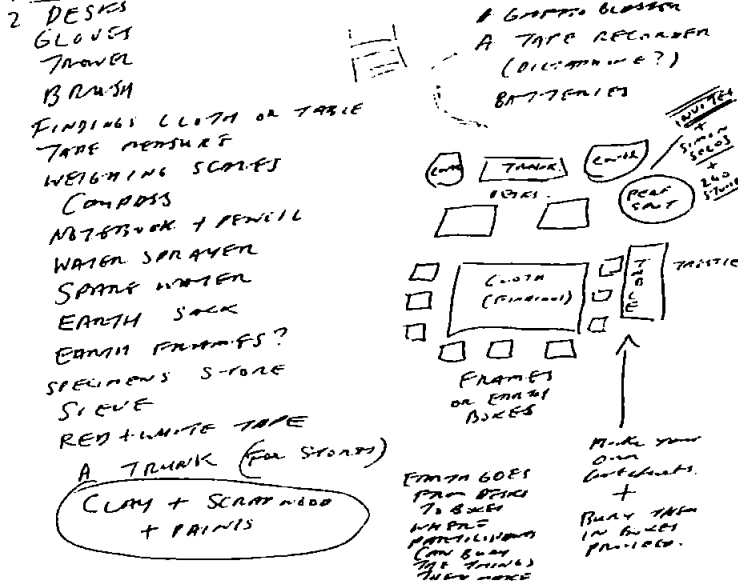 2 DESKS
GLOVES
TROWEL
BRUSH
FINDINGS CLOTH OR TABLE
TAPE MEASURE
WEIGHING SCALES
COMPASS
NOTEBOOK + PENCIL
WATER SPRAYER
SPARE WATER
EARTH SACK
EARTH FRAMES?
SPECIMENS STORE
SIEVE
RED + WHITE TAPE
A TRUNK (FOR STORES)
CLAY + SCRAP WOOD
+ PAINTS
A GHETTO BLASTER
A TAPE RECORDER
(DICTAPHONE?)
BATTERIES
INVITES
+
SIMON
+
TRUNK
DESKS.
PERF
SPOT
CLOTH
(FINDINGS)
TABLE
TRESTLE
FRAMES
OR EARTH
BOXES
EARTH GOES
FROM DESKS
TO BOXES
WHERE
PARTICIPANTS
CAN BURY
THE THINGS
THEY MAKE
Make your
own
+
BURY THEM
IN BOXES
PROVIDED.